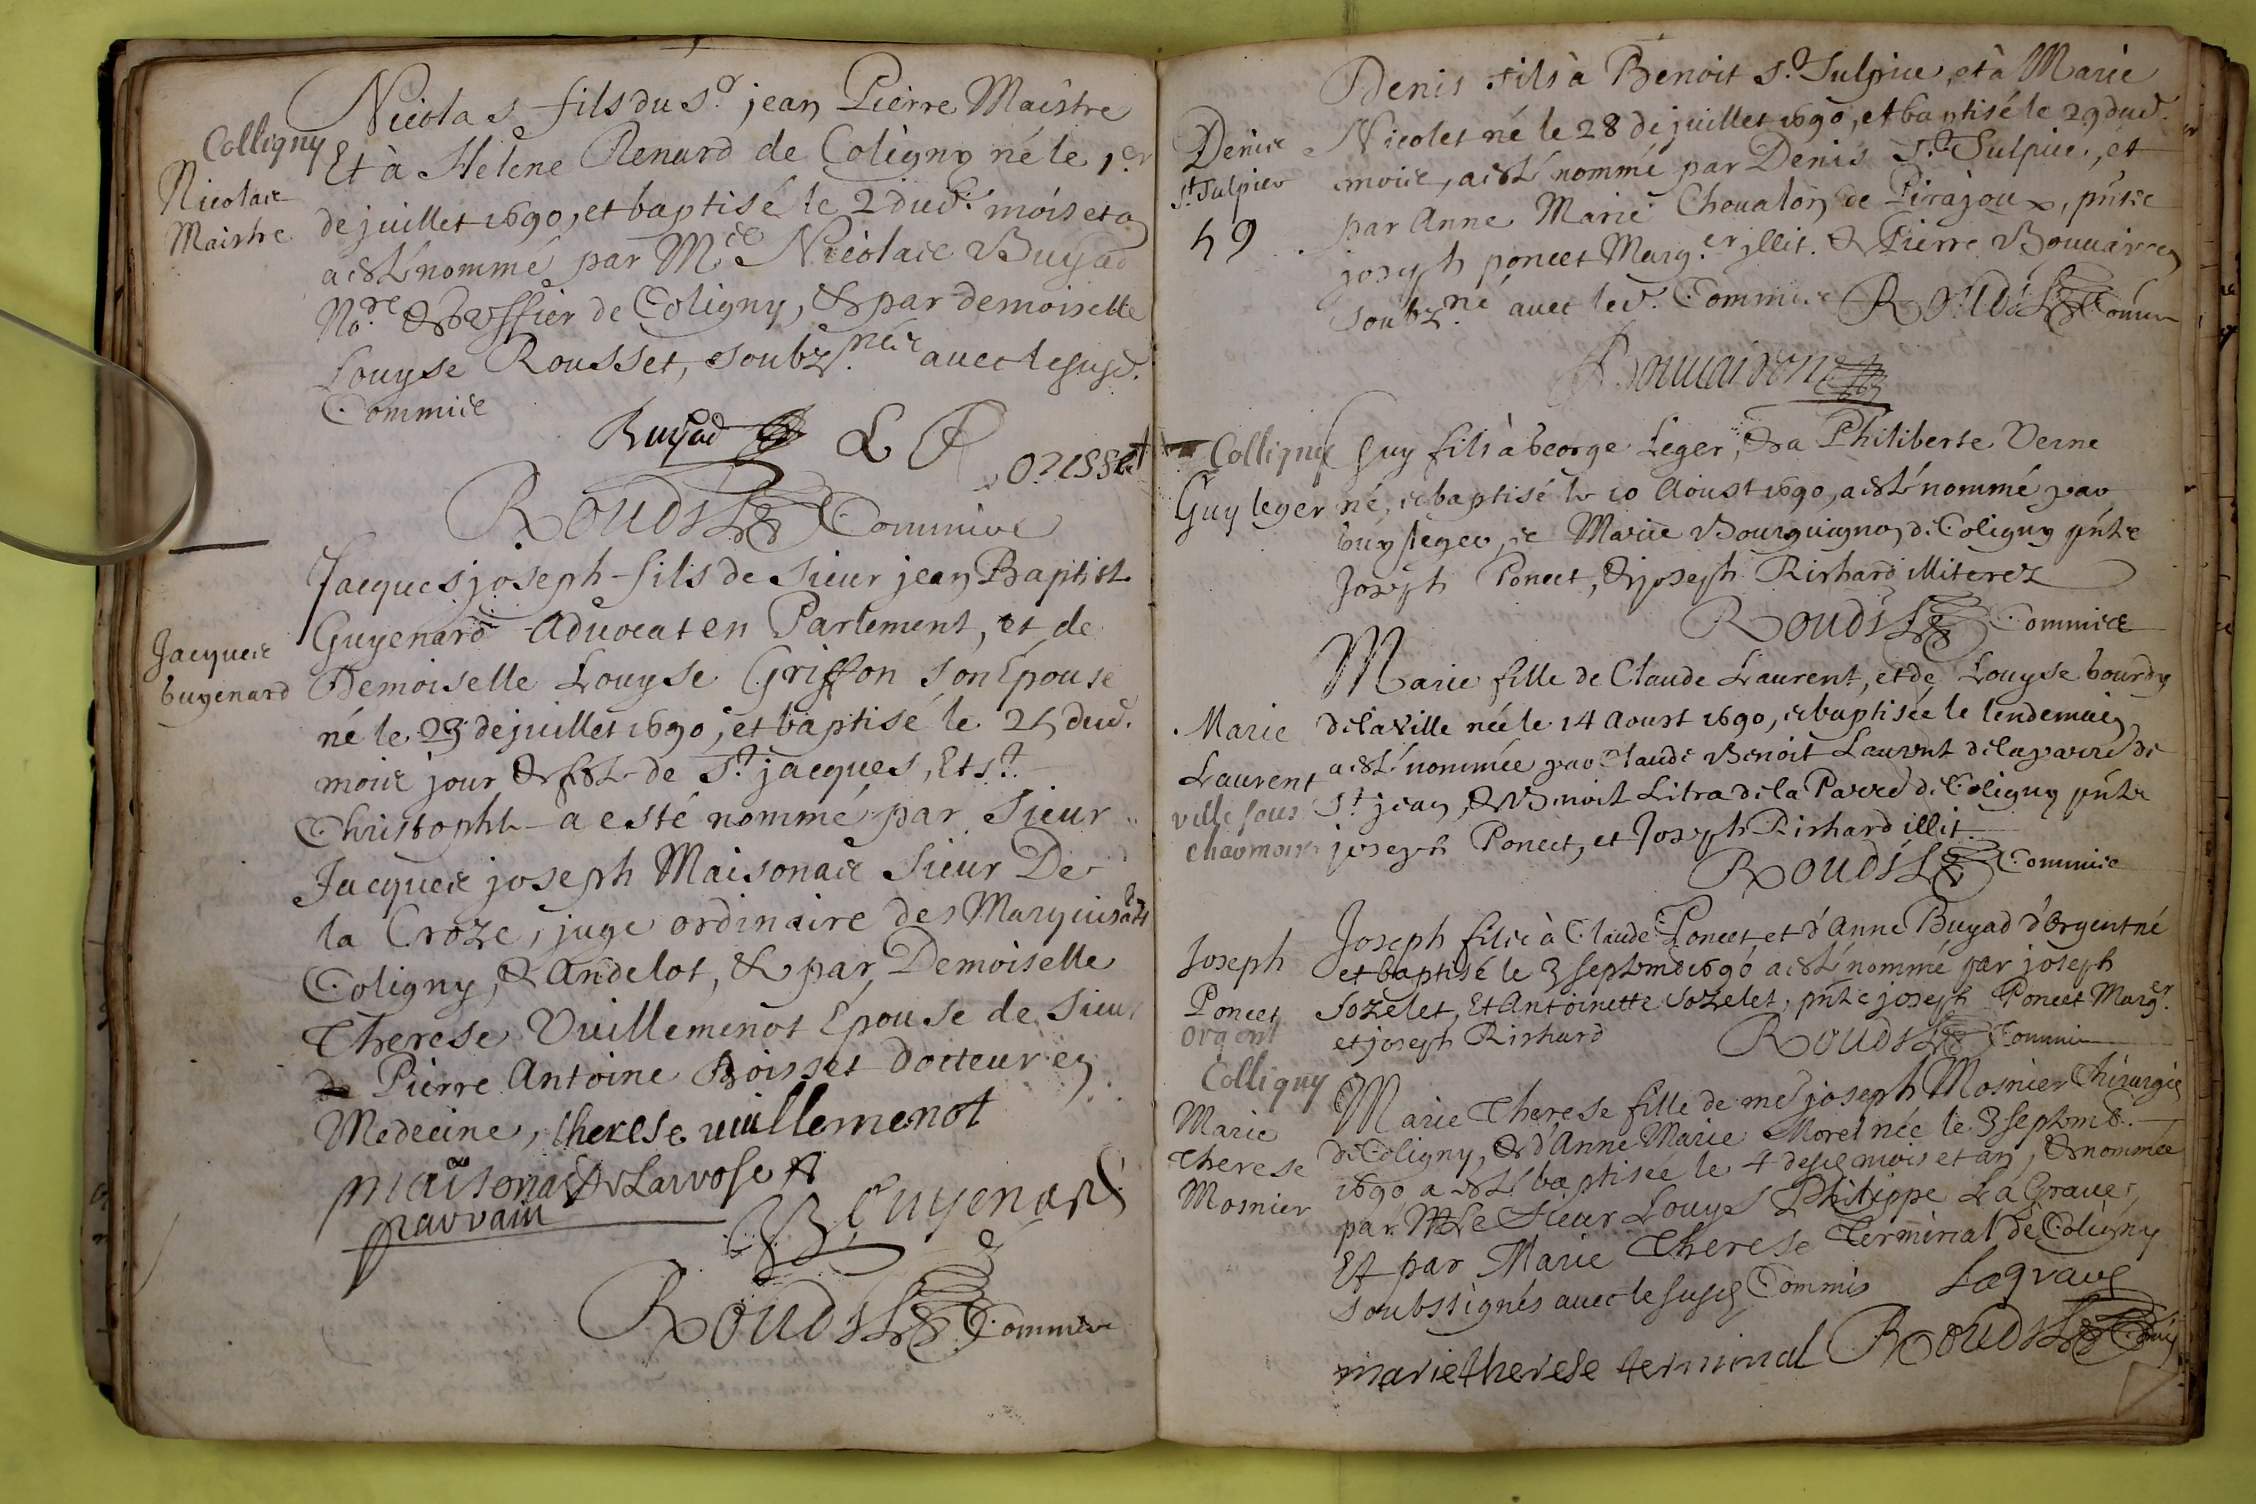 Nicolas fils du Sr jean Pierre Maistre
Colligny
Et à Helene Renard de Coligny né le 1er
Nicolaie
Maistre
de juillet 1690, et baptisé le 2 dud. mois et an
a esté nommé par Mre Nicolaie Buyad
No.re & greffier de Coligny, & par demoiselle
Louyse Rousset, soubz.née avec le susd.
Commie
Buyad L Rousset
Roudet Commie
Jacques joseph fils de Sieur jean Baptist
Jacqueie
Guyenard
Guyenard Advocat en Parlement, et de
Demoiselle Louyse Griffon son Épouse
né le 23 de juillet 1690, et baptisé le 25 dud.
moie jour & feste de St jacques, Et St
Christophle a esté nommé par Sieur
Jacqueie joseph Maisonaie Sieur De
la Croze, juge ordinaire des Marquisats
Coligny, & Andelot, & par Demoiselle
Therese Vuillemenot Épouse de Sieur
Pierre Antoine Boisset docteur en
Medecine, therese vuillemenot
parrain
Guyenard
Commie
Denis fils à Benoit St Sulpice, et à Marie
Denise
St Sulpice
59
Nicolet né le 28 de juillet 1690, et baptisé le 29 dud.
moie, a esté nommé par Denis St Sulpice, et
par Anne Marie Choualon de Pirajoux, pnts
joseph poncet Marg.er illit. & Pierre Bouuairon
soubz.né avec led. Commie Roudet Comie
Bouuairon
Colligny
Guy leger
Guy fils à George Leger, & a Philiberte Verne
né, & baptisé le 10 Aoust 1690, a esté nommé par
Guy leger, & Marie Bourguignon de Coligny pnts
Joseph Poncet, & joseph Rishard illiterez
Roudet Commie
Marie
Laurent
ville sous
chaomoux
Marie fille de Claude Laurent, et de Louyse bourdy
de la Ville née le 14 Aoust 1690, & baptisée le lendemain
a esté nommée par Claude Benoit Laurent de la parre de
St jean, & Benoit Litra de la Parre de Coligny pnts
joseph Poncet, et Joseph Rishard illit.
Roudet Commie
Joseph
Poncet
Orgent
Joseph filie à Claude Poncet et d'Anne Buyad d'Orgent né
et baptisé le 3 Septemb 1690 a esté nommé par joseph
Sozelet, Et Antoinette Sozelet, pnts joseph Poncet Marg.er
et joseph Rishard
Roudet Commie
Colligny
Marie
Therese
Mosnier
Marie Therese fille de me joseph Mosnier Chirurgien
de Coligny, & d'Anne Marie Morel née le 3 Septemb.
1690 a esté baptisée le 4 desd mois et an, & nommée
par Mre Sieur Louys Philippe La Graue,
Et par Marie Therese Terminal de Coligny
soubssignés avec le susd Commis
Lagraue
marie therese terminal Roudet